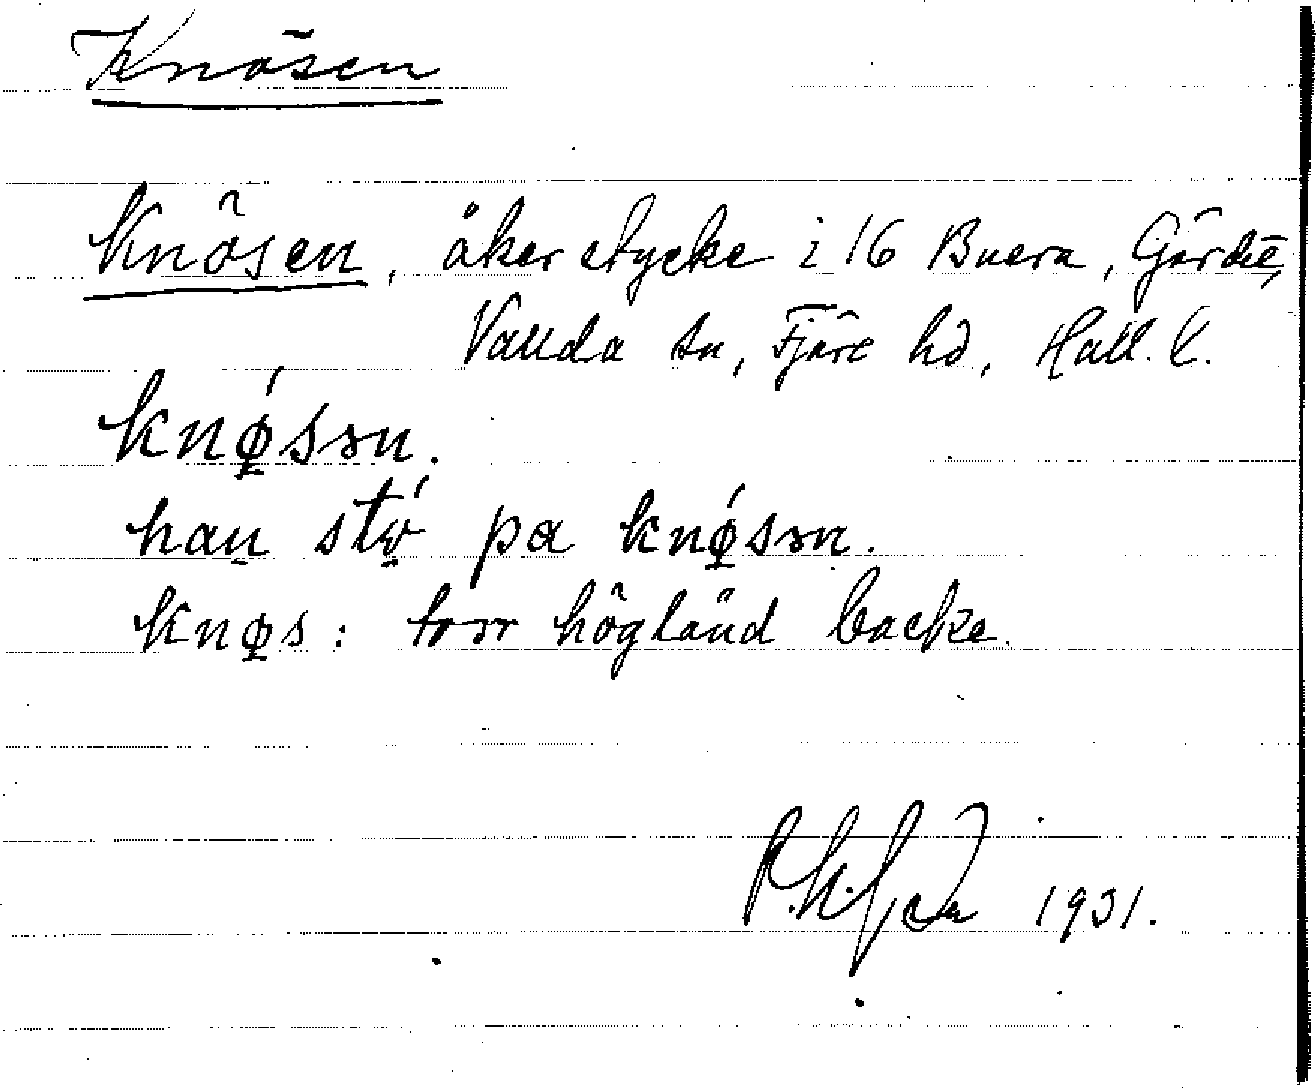 Knösen
Knösen, åkerstycke i 16 Buera, Gärdet,
Vallda sn, Fjäre hd, Hall. l.
knǿ̲sən.
han̲ stó̲ pa knǿ̲sən.
knø̲s: torr högländ backe.
1931.